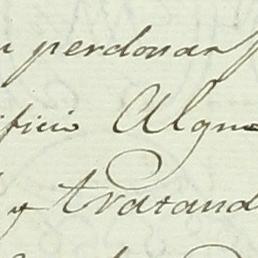 perdonar
ificio Algun
y tratand